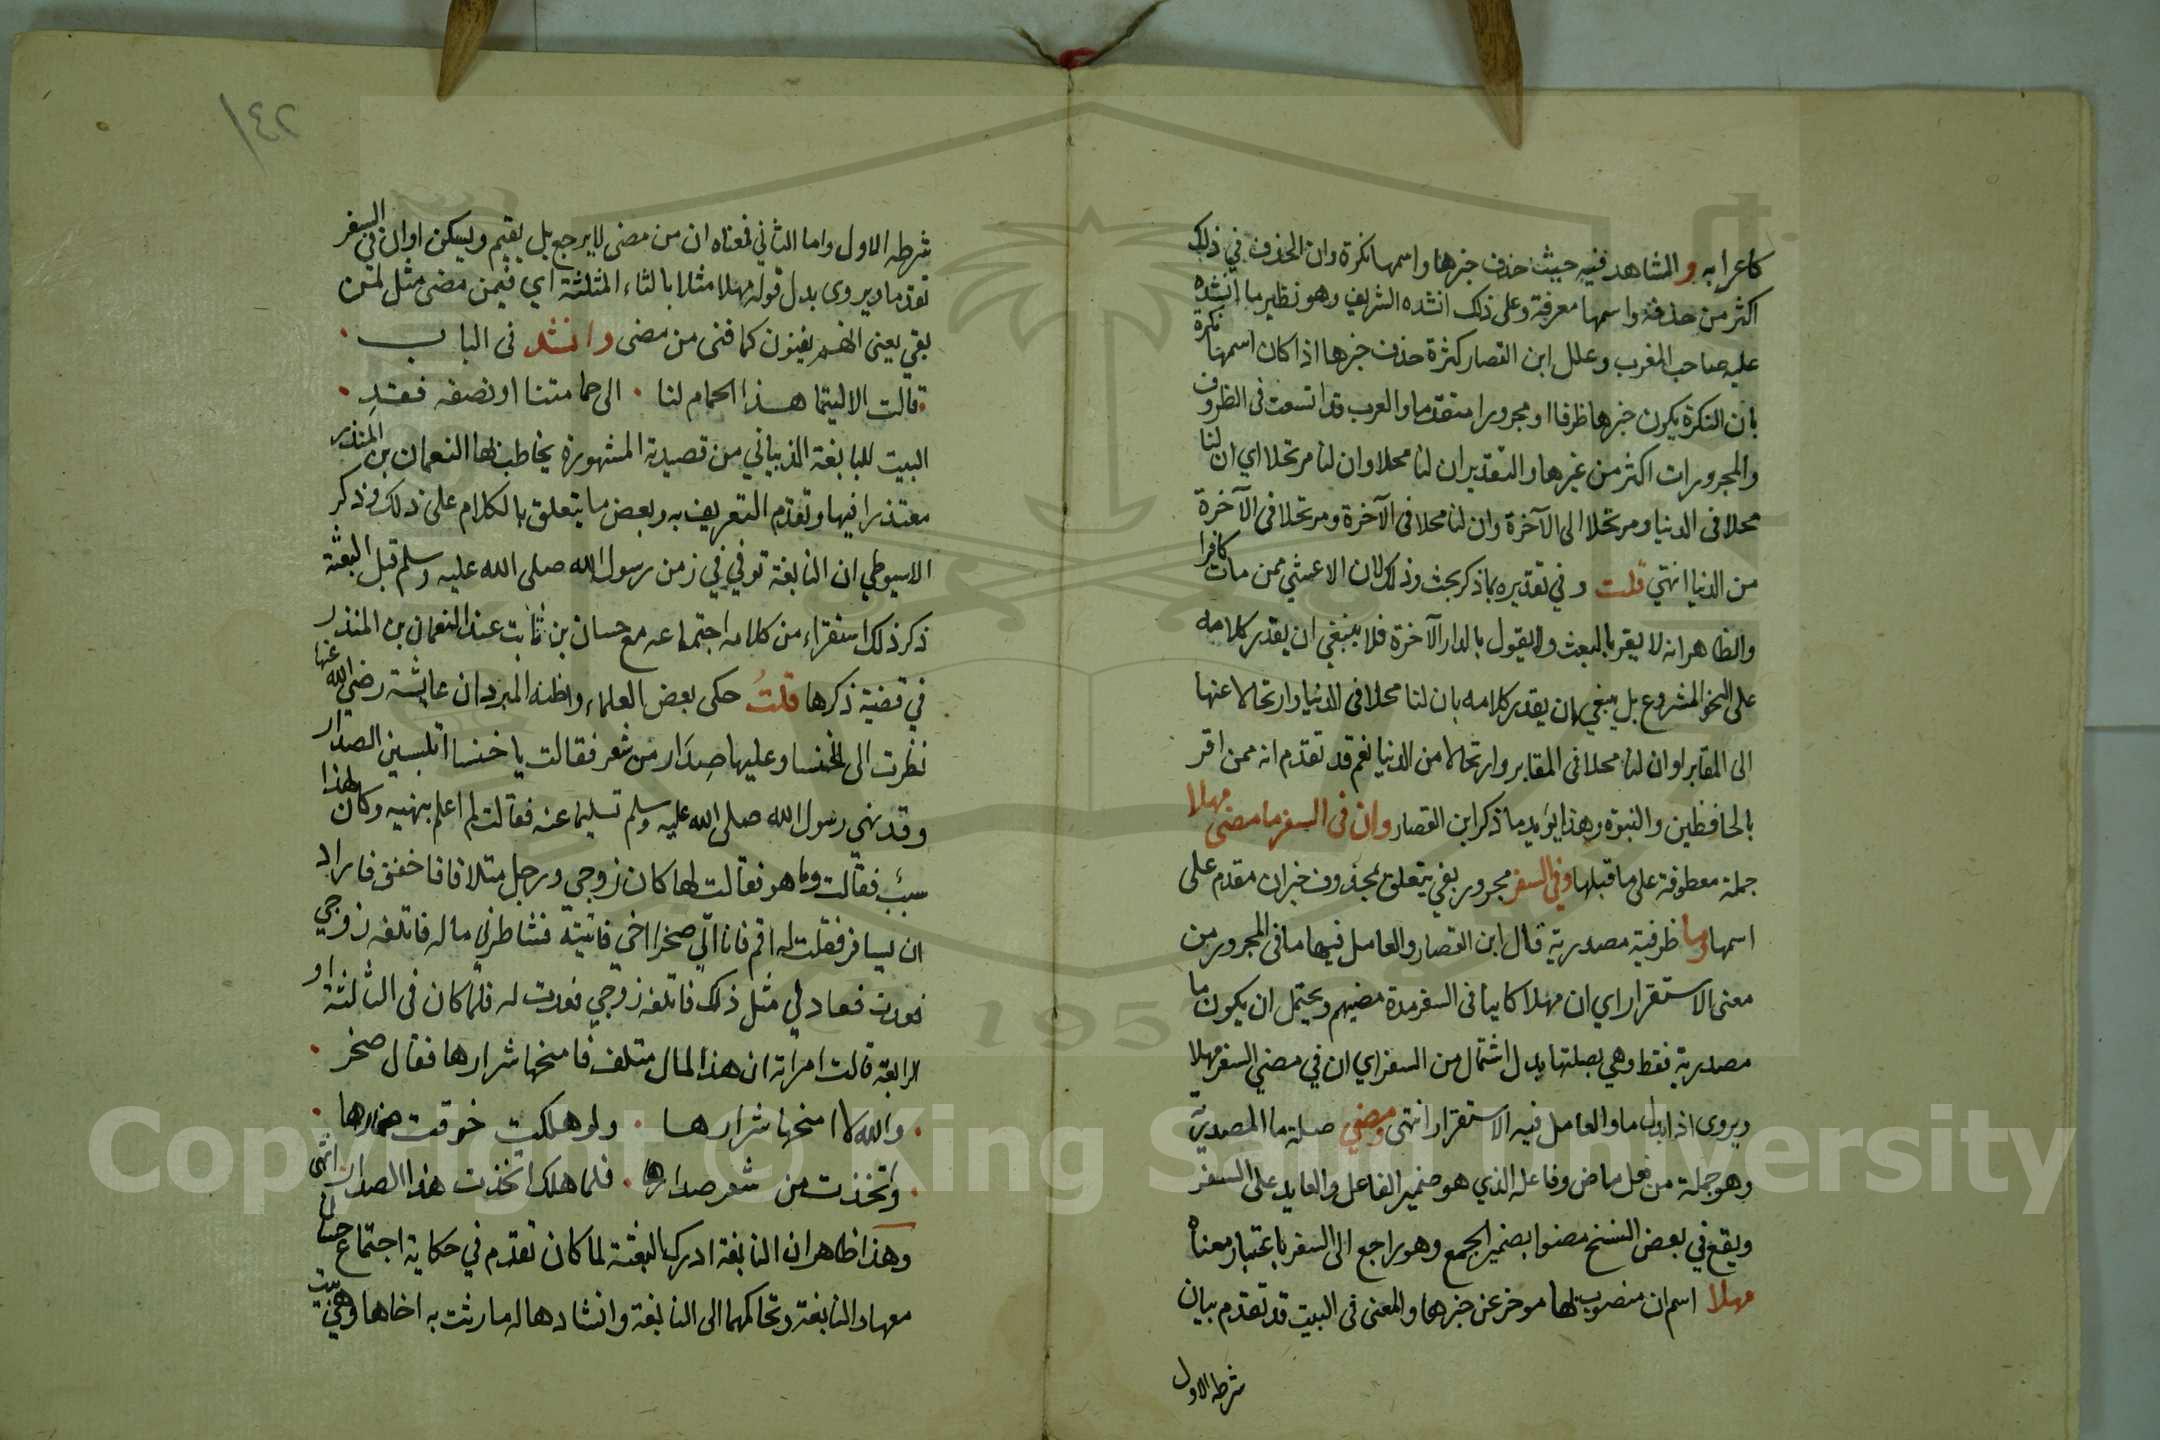 كاعرابه والشاهد فيه حيث حذف خبرها واسمها نكرة وان الحذف في ذلك
اكثر من حذفه واسمها معرفة وعلى ذلك انشده الشريف وهو نظير ما انشده
عليه صاحب المغرب وعلل ابن القصار كثرة حذف خبرها اذا كان اسمها نكرة
بان النكرة يكون خبرها ظرفا او مجرورا متقدما والعرب قد اتسعت فى الظروف
والمجرورات اكثر من غيرها والتقدير ان لنا محلا وان لنا مرتحلا اي ان لنا
محلا فى الدنيا ومرتحلا الى الآخرة وان لنا محلا فى الآخرة ومرتحلا فى الآخرة
من الدنيا انتهي قلت و في تقديره بما ذكر بحث وذلك لان الاعشي ممن مات كافرا
والظاهر انه لا يقر بالبعث ولا يقول بالدار الآخرة فلا ينبغي ان يقدر كلامه
على النحو المشروع بل ينبغي ان يقدر كلامه بان لنا محلا فى الدنيا وارتحالا عنها
الى المقابر او ان لنا محلا فى المقابر وارتحالا من الدنيا نعم قد تقدم انه ممن اقر
بالحافظين والنبوة وهذا يؤيد ما ذكر ابن القصار وان فى السفر ما مضى مهلا
جملة معطوفة على ما قبلها وفي السفر مجرور بفي يتعلق بمحذوف خبر ان مقدم على
اسمها وما ظرفية مصدرية قال ابن القصار والعامل فيها ما فى المجرور من
معنى الاستقرار اي ان مهلا كاينا فى السفر مدة مضيهم ويحتمل ان يكون ما
مصدرية فقط وهي بصلتها بدل اشتمال من السفر اي ان في مضي السفر مهلا
ويروى اذ ابدل ما والعامل فيه الاستقرار انتهى ومضي صلة ما المصدرية
وهو جملة من فعل ماض وفاعله الذي هو ضمير الفاعل والعايد على السفر
ويقع في بعض النسخ مضوا بضمير الجمع وهو راجع الى السفر باعتبار معناه
مهلا اسم ان منصوب لها موخر عن خبرها والمعنى فى البيت قد تقدم بيان
شرطه الاول
١٤٢
شرطه الاول واما الثاني فمعناه ان من مضى لا يرجع بل يقيم ويسكن او ان في السفر
تقدما ويروى بدل قوله مهلا مثلا بالثاء المثلثة اي فيمن مضى مثل لمن
بقي يعنى انهم يفنون كما فنى من مضى وانشد فى الباب
قالت الا ليتما هذا الحمام لنا الى حمامتنا او نصفه فقد
البيت للنابغة الذبياني من قصيدته المشهورة يخاطب لها النعمان بن المنذر
معتذرا فيها وتقدم التعريف به وبعض ما يتعلق بالكلام على ذلك وذكر
الاسيوطي ان النابغة توفي في زمن رسول الله صلى الله عليه وسلم قبل البعثة
ذكر ذلك استقراء من كلامه اجتماعه مع حسان بن ثابت عند النعمان بن المنذر
في قضية ذكرها قلت حكى بعض العلماء واظنه المبرد ان عايشة رضي الله عنها
نظرت الى الخنسا وعليها صدار من شعر فقالت يا خنسا اتلبسين الصدار
وقد نهى رسول الله صلى الله عليه وسلم تسليما عنه فقالت لم اعلم بنهيه وكان لهذا
سبب فقالت وما هو فقالت لها كان زوجي رجل متلافا فاخفق فاراد
ان يسافر فقلت له اقم فانا اتي صخرا اخي فاتيته فشاطرني ماله فاتلفه زوجي
فعدت فعاد لي مثل ذلك فاتلفه زوجي فعدت له فلما كان فى الثالثة او
الرابعة قالت امراته ان هذا المال متلف فامنحها شرارها فقال صخر
والله لا امنحها شرارها ولو هلكت خرقت خمارها
واتخذت من شعر صدارها فلما هلك اتخذت هذا الصدار انتهى
وهذا ظاهر ان النابغة ادرك البعثة لما كان تقدم في حكاية اجتماع حسان
معها والنابغة وتحاكمهما الى النابغة وانشادها له ما رثت به اخاها وهي بيت
Copyright © King Saud University
1957